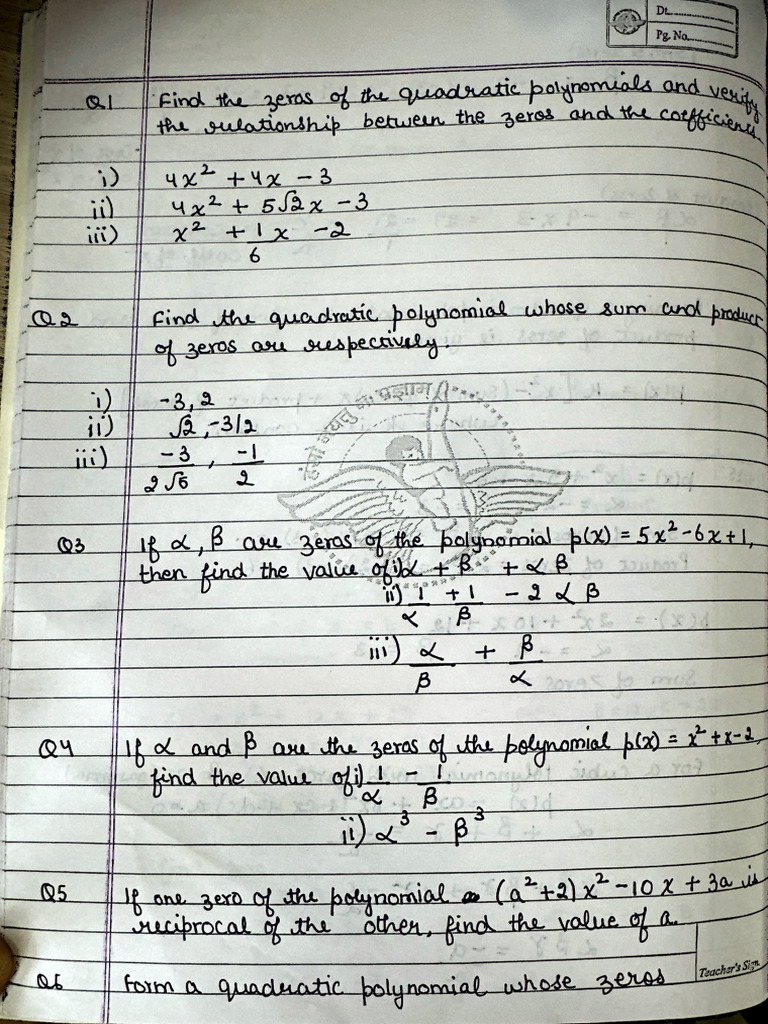 Dt.............
Pg. No............
Q1 Find the zeros of the quadratic polynomials and verify
the relationship between the zeros and the coefficients.
i) 4x² + 4x - 3
ii) 4x² + 5√2x - 3
iii) x² + 1/6 x - 2
Q2 Find the quadratic polynomial whose sum and product
of zeros are respectively.
i) -3, 2
ii) √2, -3/2
iii) -3/2√6 , -1/2
हंसो नयतु नः प्रज्ञाम्
Q3 If α, β are zeros of the polynomial p(x) = 5x² - 6x + 1,
then find the value of i) α + β + αβ
ii) 1/α + 1/β - 2αβ
iii) α/β + β/α
Q4 If α and β are the zeros of the polynomial p(x) = x² + x - 2,
find the value of i) 1/α - 1/β
ii) α³ - β³
Q5 If one zero of the polynomial (a² + 2)x² - 10x + 3a is
reciprocal of the other, find the value of a.
Teacher's Sign
Q6 Form a quadratic polynomial whose zeros